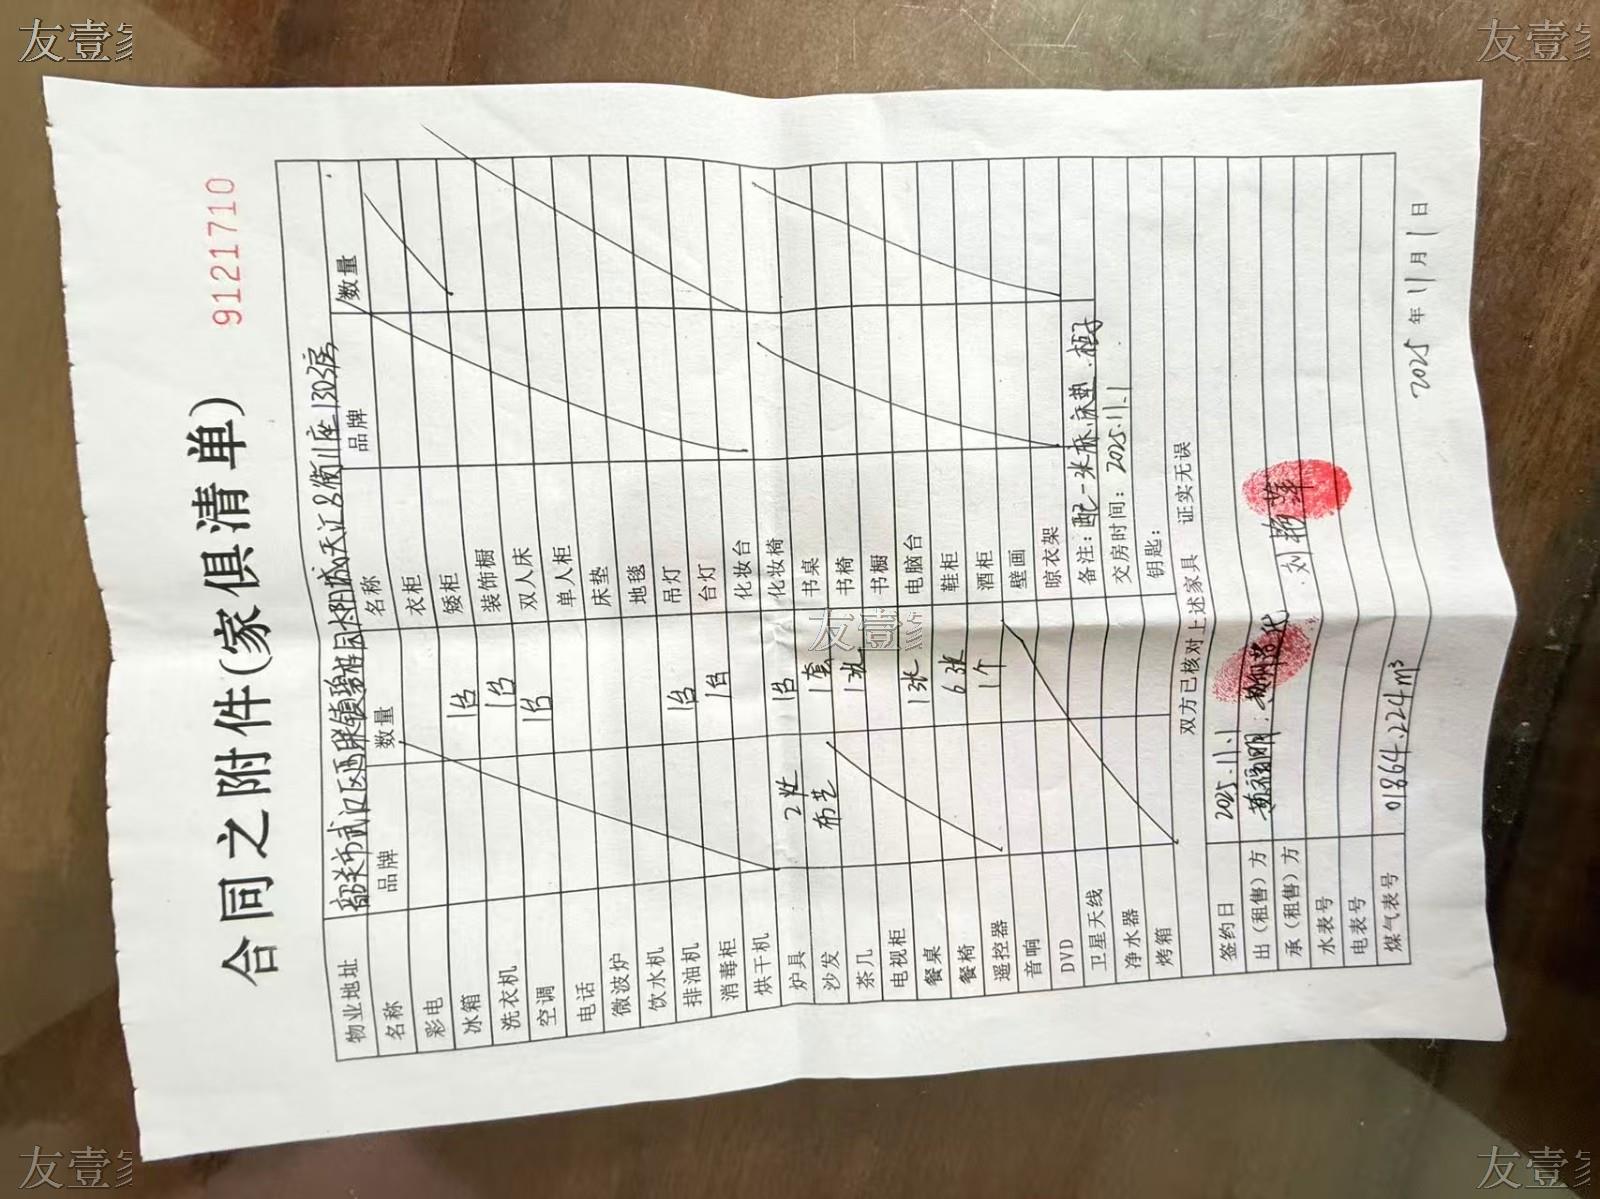 友壹家
友壹家
9121710
合同之附件(家俱清单)
物业地址 韶关市武江区西联镇碧桂园太阳城天汇名街川座1303房
名称 品牌 数量 名称 品牌 数量
彩电 衣柜
冰箱 1台 矮柜
洗衣机 1台 装饰橱
空调 1台 双人床
电话 单人柜
微波炉 床垫
饮水机 地毯
排油机 1台 吊灯
消毒柜 1台 台灯
烘干机 化妆台
炉具 2灶 1台 化妆椅
沙发 布艺 1套 书桌
茶几 1张 书椅
电视柜 书橱
餐桌 1张 电脑台
餐椅 6张 鞋柜
遥控器 1个 酒柜
音响 壁画
DVD 晾衣架
卫星天线 备注: 配一张床.床垫.柜子
净水器 交房时间: 2025.11.1
烤箱 钥匙:
双方已核对上述家具 证实无误
签约日 2025.11.1
出(租售)方 黄福明
承(租售)方 刘艳萍
水表号
电表号
煤气表号 01864.224m³
2025年11月1日
友壹家
友壹家
友壹家